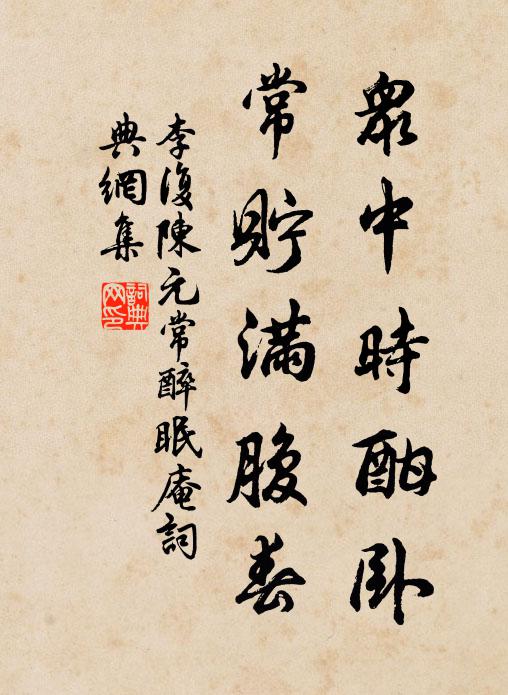 眾中時酣卧
常貯滿腹春
李復陳元常醉眠庵詞
典網集
詞典網印